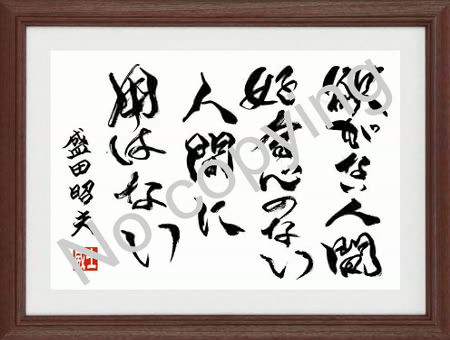 欲がない人間
好奇心のない
人間に
用はない
盛田昭夫
No copying